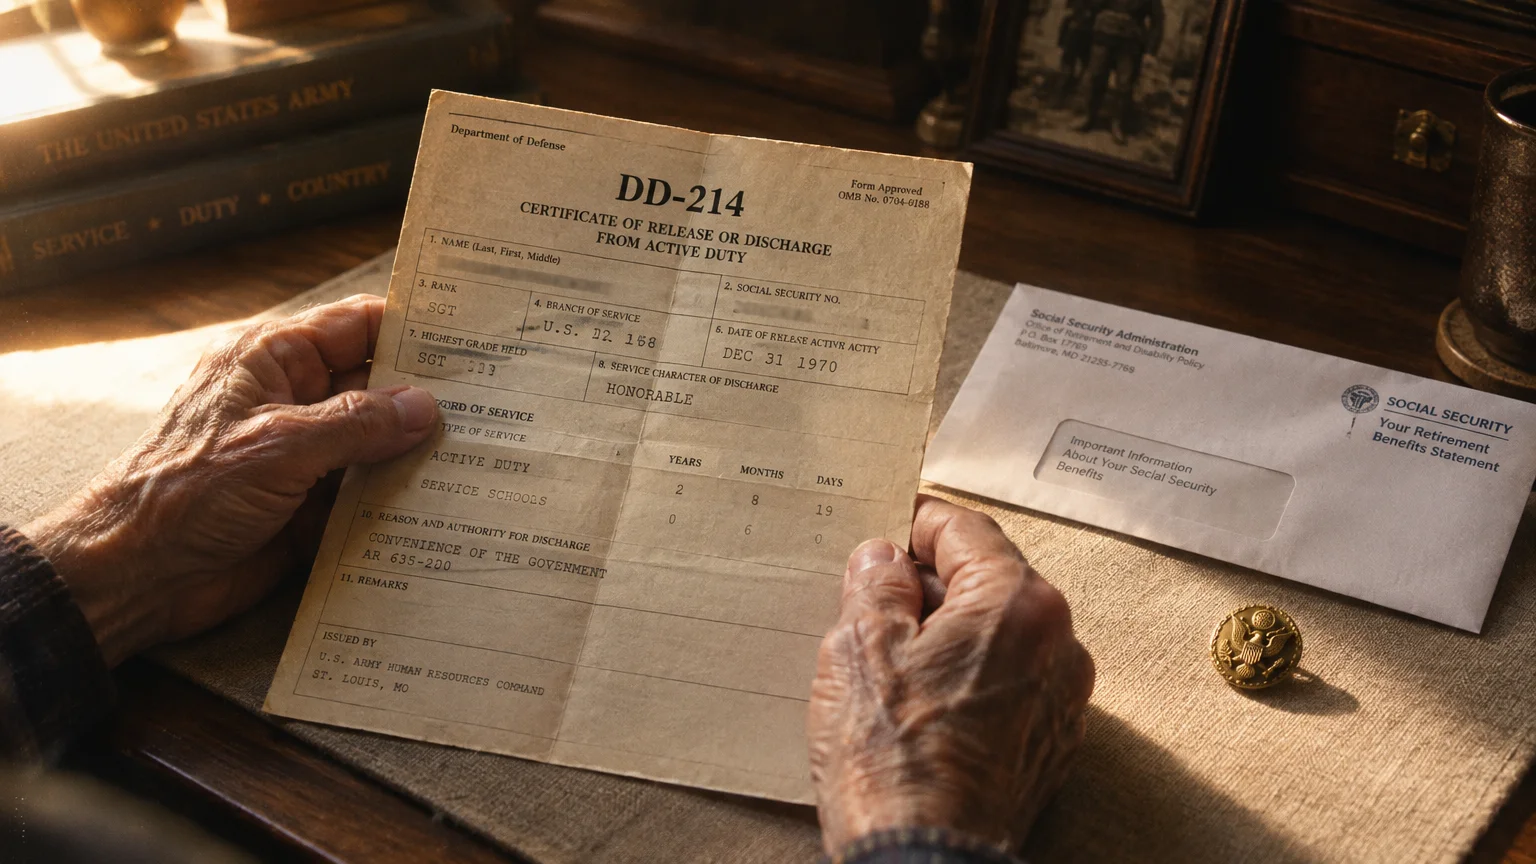 THE UNITED STATES ARMY
SERVICE ★ DUTY ★ COUNTRY
Department of Defense
Form Approved
OMB No. 0704-0188
DD-214
CERTIFICATE OF RELEASE OR DISCHARGE
FROM ACTIVE DUTY
1. NAME (Last, First, Middle)
2. SOCIAL SECURITY NO.
3. RANK
SGT
4. BRANCH OF SERVICE
U.S.
6. DATE OF RELEASE ACTIVE ACTY
DEC 31 1970
7. HIGHEST GRADE HELD
SGT
8. SERVICE CHARACTER OF DISCHARGE
HONORABLE
ORD OF SERVICE
TYPE OF SERVICE
YEARS MONTHS DAYS
ACTIVE DUTY 2 8 19
SERVICE SCHOOLS 0 6 0
10. REASON AND AUTHORITY FOR DISCHARGE
CONVENIENCE OF THE GOVENMENT
AR 635-200
11. REMARKS
ISSUED BY
U.S. ARMY HUMAN RESOURCES COMMAND
ST. LOUIS, MO
Social Security Administration
Office of Retirement and Disability Policy
P.O. Box 17769
Baltimore, MD 21235-7769
SOCIAL SECURITY
Your Retirement
Benefits Statement
Important Information
About Your Social Security
Benefits